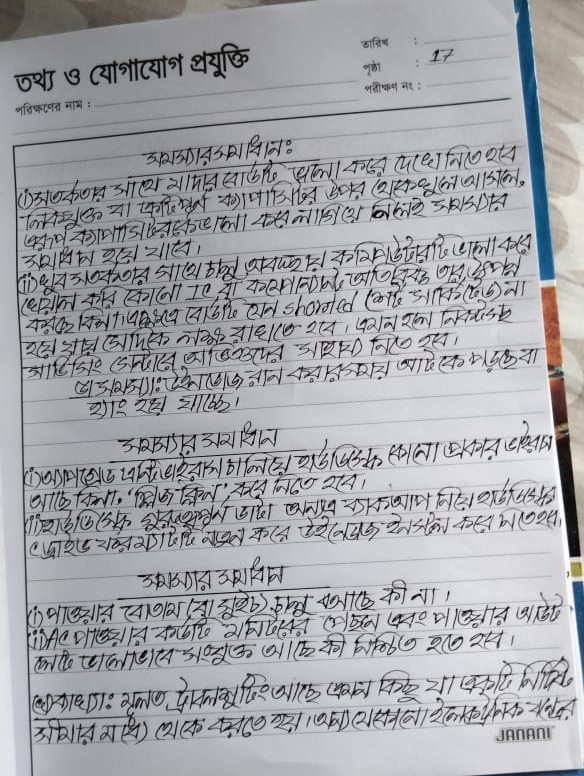 তথ্য ও যোগাযোগ প্রযুক্তি
তারিখ :
পৃষ্ঠা : 17
পরিক্ষণের নাম :
পরীক্ষণ নং :
সমস্যার সমাধানঃ
(i) সতর্কতার সাথে মাদারবোর্ডটি ভালো করে দেখে নিতে হবে
লিকযুক্ত বা ত্রুটিপূর্ণ ক্যাপাসিটর উপর থেকে খুলে আসলে,
ক্যাপাসিটরকে ভালো করে লাগিয়ে নিলেই সমস্যার
সমাধান হয়ে যাবে।
(ii) খুব সতর্কতার সাথে চালু অবস্থায় কম্পিউটারটি ভালো করে
খেয়াল করি কোনো IC বা কম্পোনেন্ট অতিরিক্ত তাপ উৎপন্ন
করছে কিনা। এক্ষেত্রে বোর্ডটি যেন shorted (শর্ট সার্কিটেড) না
হয়ে যায় সেদিকে লক্ষ্য রাখতে হবে। এমন হলে নিকটস্থ
সার্ভিসিং সেন্টারে অভিজ্ঞদের সাহায্য নিতে হবে।
সমস্যা: উইনডোজ রান করার সময় আটকে পড়ছে বা
হ্যাং হয়ে যাচ্ছে।
সমস্যার সমাধান
(i) আপগ্রেড এন্টিভাইরাস চালিয়ে হার্ডডিস্কে কোনো প্রকার ভাইরাস
আছে কিনা, ক্লিন' করে নিতে হবে।
(ii) হার্ডডিস্কে গুরুত্বপূর্ণ ডাটা অন্যত্র ব্যাকআপ নিয়ে হার্ডডিস্কের
নতুন করে উইনডোজ ইনস্টল করে নিতে হবে।
সমস্যার সমাধান
(i) পাওয়ার বোতাম (বা সুইচ) চালু আছে কী না।
(ii) AC পাওয়ার কর্ডটি মনিটরের পেছন এবং পাওয়ার আউট
লেটে ভালোভাবে সংযুক্ত আছে কী নিশ্চিত হতে হবে।
ব্যাখ্যা: মূলত, ট্রাবলশুটিং আছে এমন কিছু যা একটি নির্দিষ্ট
সীমার মধ্যে থেকে করতে হয়। অন্য যেকোনো ইলেকট্রনিক যন্ত্রের
JANANI